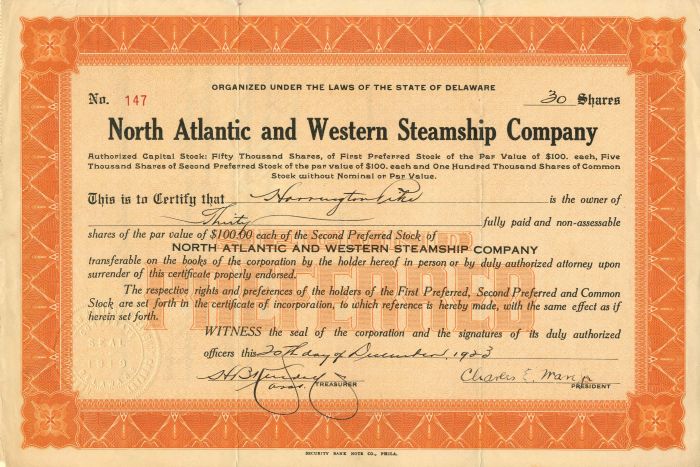 ORGANIZED UNDER THE LAWS OF THE STATE OF DELAWARE
No. 147 30 Shares
North Atlantic and Western Steamship Company
Authorized Capital Stock: Fifty Thousand Shares, of First Preferred Stock of the Par Value of $100. each, Five
Thousand Shares of Second Preferred Stock of the par value of $100. each and One Hundred Thousand Shares of Common
Stock without Nominal or Par Value.
This is to Certify that Harrington Pike is the owner of
Thirty fully paid and non-assessable
shares of the par value of $100.00 each of the Second Preferred Stock of
NORTH ATLANTIC AND WESTERN STEAMSHIP COMPANY
transferable on the books of the corporation by the holder hereof in person or by duly authorized attorney upon
surrender of this certificate properly endorsed.
The respective rights and preferences of the holders of the First Preferred, Second Preferred and Common
Stock are set forth in the certificate of incorporation, to which reference is hereby made, with the same effect as if
herein set forth.
WITNESS the seal of the corporation and the signatures of its duly authorized
officers this 20th day of December, 1923
SEAL
1919
DELAWARE
Asst. TREASURER
Charles E.
PRESIDENT
SECURITY BANK NOTE CO., PHILA.